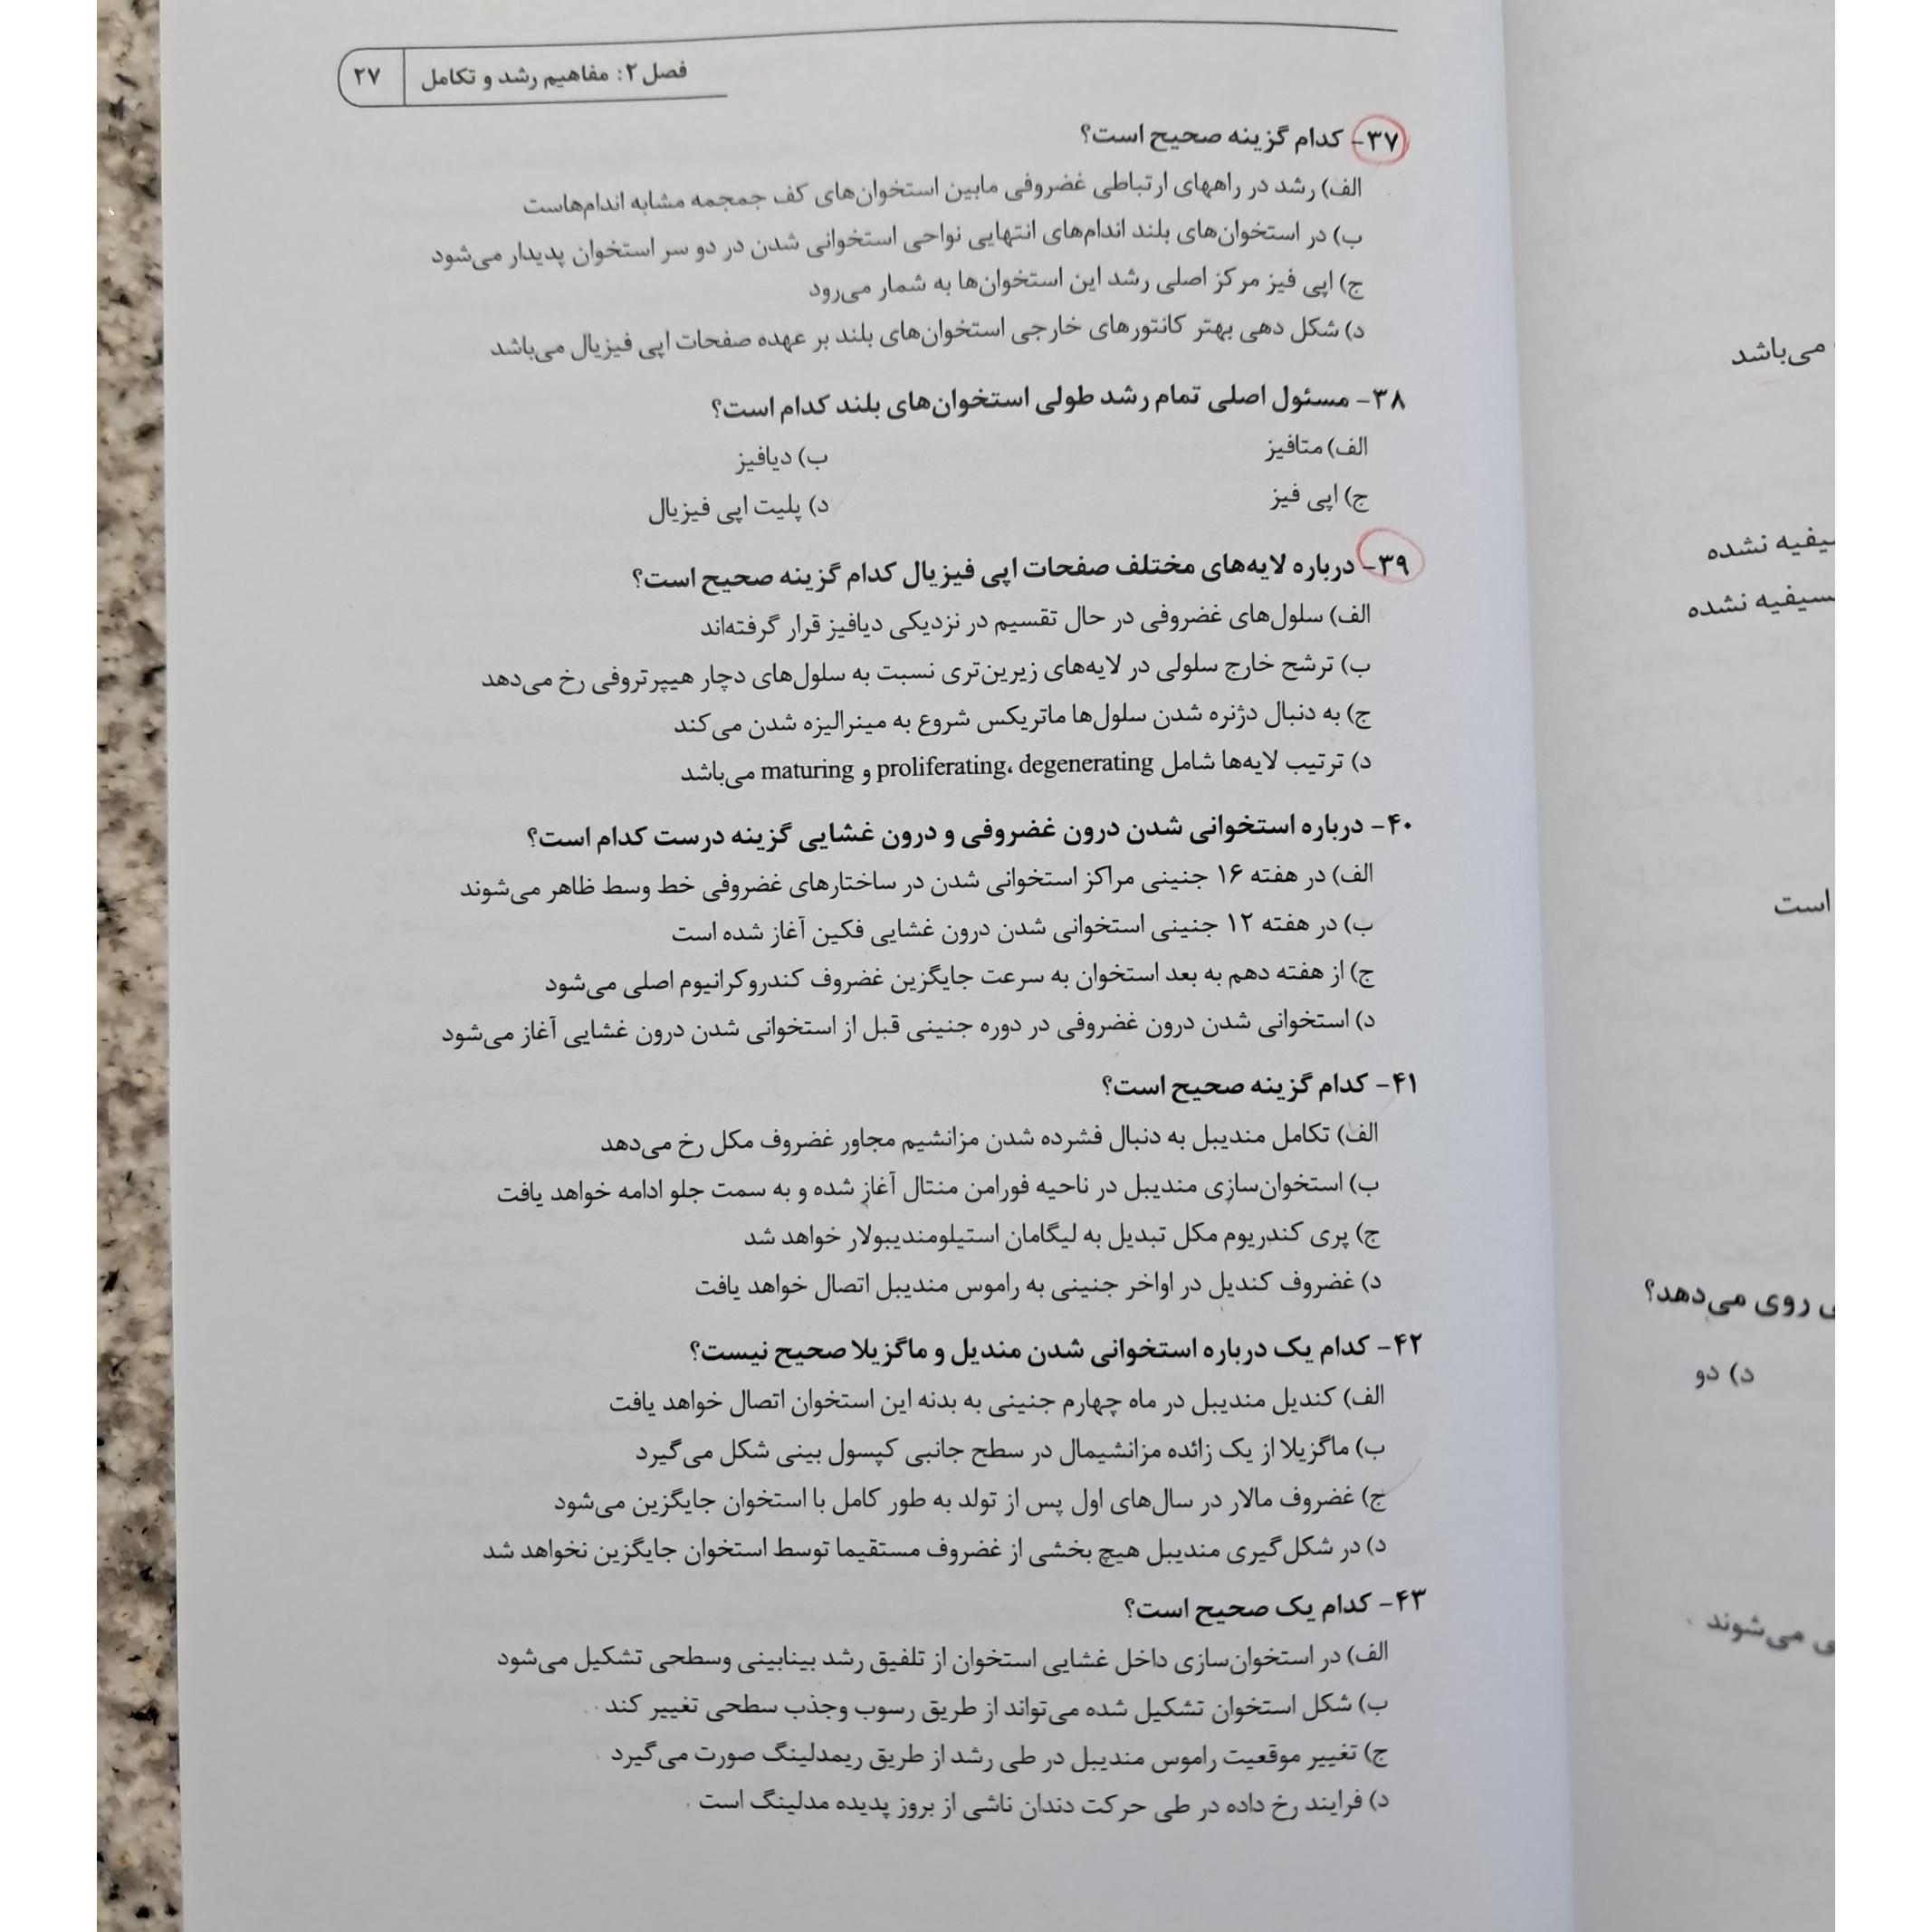 فصل ۲: مفاهیم رشد و تکامل ۲۷
۳۷- کدام گزینه صحیح است؟
الف) رشد در راههای ارتباطی غضروفی مابین استخوان‌های کف جمجمه مشابه اندام‌هاست
ب) در استخوان‌های بلند اندام‌های انتهایی نواحی استخوانی شدن در دو سر استخوان پدیدار می‌شود
ج) اپی فیز مرکز اصلی رشد این استخوان‌ها به شمار می‌رود
د) شکل دهی بهتر کانتورهای خارجی استخوان‌های بلند بر عهده صفحات اپی فیزیال می‌باشد
۳۸- مسئول اصلی تمام رشد طولی استخوان‌های بلند کدام است؟
الف) متافیز ب) دیافیز
ج) اپی فیز د) پلیت اپی فیزیال
۳۹- درباره لایه‌های مختلف صفحات اپی فیزیال کدام گزینه صحیح است؟
الف) سلول‌های غضروفی در حال تقسیم در نزدیکی دیافیز قرار گرفته‌اند
ب) ترشح خارج سلولی در لایه‌های زیرین‌تری نسبت به سلول‌های دچار هیپرتروفی رخ می‌دهد
ج) به دنبال دژنره شدن سلول‌ها ماتریکس شروع به مینرالیزه شدن می‌کند
د) ترتیب لایه‌ها شامل proliferating، degenerating و maturing می‌باشد
۴۰- درباره استخوانی شدن درون غضروفی و درون غشایی گزینه درست کدام است؟
الف) در هفته ۱۶ جنینی مراکز استخوانی شدن در ساختارهای غضروفی خط وسط ظاهر می‌شوند
ب) در هفته ۱۲ جنینی استخوانی شدن درون غشایی فکین آغاز شده است
ج) از هفته دهم به بعد استخوان به سرعت جایگزین غضروف کندروکرانیوم اصلی می‌شود
د) استخوانی شدن درون غضروفی در دوره جنینی قبل از استخوانی شدن درون غشایی آغاز می‌شود
۴۱- کدام گزینه صحیح است؟
الف) تکامل مندیبل به دنبال فشرده شدن مزانشیم مجاور غضروف مکل رخ می‌دهد
ب) استخوان‌سازی مندیبل در ناحیه فورامن منتال آغاز شده و به سمت جلو ادامه خواهد یافت
ج) پری کندریوم مکل تبدیل به لیگامان استیلومندیبولار خواهد شد
د) غضروف کندیل در اواخر جنینی به راموس مندیبل اتصال خواهد یافت
۴۲- کدام یک درباره استخوانی شدن مندیل و ماگزیلا صحیح نیست؟
الف) کندیل مندیبل در ماه چهارم جنینی به بدنه این استخوان اتصال خواهد یافت
ب) ماگزیلا از یک زائده مزانشیمال در سطح جانبی کپسول بینی شکل می‌گیرد
ج) غضروف مالار در سال‌های اول پس از تولد به طور کامل با استخوان جایگزین می‌شود
د) در شکل‌گیری مندیبل هیچ بخشی از غضروف مستقیما توسط استخوان جایگزین نخواهد شد
۴۳- کدام یک صحیح است؟
الف) در استخوان‌سازی داخل غشایی استخوان از تلفیق رشد بینابینی وسطحی تشکیل می‌شود
ب) شکل استخوان تشکیل شده می‌تواند از طریق رسوب وجذب سطحی تغییر کند.
ج) تغییر موقعیت راموس مندیبل در طی رشد از طریق ریمدلینگ صورت می‌گیرد.
د) فرایند رخ داده در طی حرکت دندان ناشی از بروز پدیده مدلینگ است.
می‌باشد
نشده
نشده
است
روی می‌دهد؟
د) دو
می‌شوند.